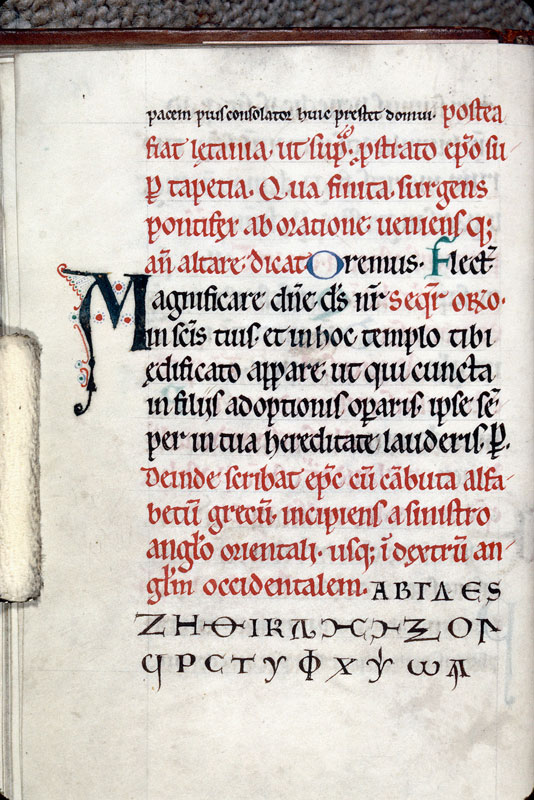 pacem pius consolator huic prestet domui. postea
fiat lętania. ut sup̄. ꝓstrato ep̄o su
ꝑ tapetia. Qua finita surgens
pontifex ab oratione ueniensq;
an̄ altare dicat Oremus. Flect̄
Magnificare dn̄e ds̄ nr̄ seqr̄ or̄o.
in sc̄is tuis et in hoc templo tibi
ędificato appare. ut qui cuncta
in filijs adoptionis oꝑaris. ipse sē
per in tua hereditate lauderis. ꝑ.
Deinde scribat ep̄c cū cābuta alfa
betū grecū. incipiens a sinistro
angl̄o orientali. usq; ī dextrū an
gl̄m occidentalem. ΑΒΓΔΕS
ΖΗΘΙΚΛ ΞΟΠ
ϤΡCΤΥΦΧΨωϠ